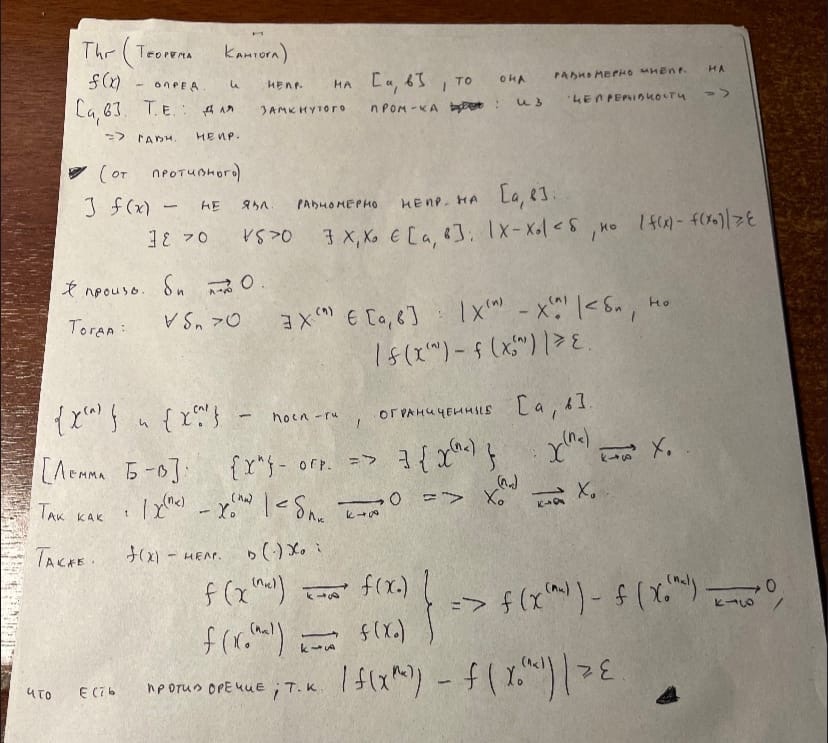 Thr (Теорема Кантора)
f(x) - опред. и непр. на [a, b], то она равномерно непр. на
[a, b]. Т.е.: для замкнутого пром-ка : из непрерывности =>
=> равн. непр.
(от противного)
] f(x) — не явл. равномерно непр. на [a, b].
∃ε>0 ∀δ>0 ∃ x, x₀ ∈ [a, b]: |x-x₀|<δ, но |f(x)-f(x₀)|≥ε
произв. δₙ →(n→∞) 0.
Тогда: ∀δₙ>0 ∃x⁽ⁿ⁾ ∈ [a, b] : |x⁽ⁿ⁾ - x₀⁽ⁿ⁾|<δₙ, но
|f(x⁽ⁿ⁾) - f(x₀⁽ⁿ⁾)|≥ε.
{x⁽ⁿ⁾} и {x₀⁽ⁿ⁾} - посл-ти, ограниченные [a, b].
[Лемма Б-В]: {xⁿ} - огр. => ∃{x^(n_k)} : x^(n_k) →(k→∞) x₀
Так как : |x^(n_k) - x₀^(n_k)|<δ_(n_k) →(k→∞) 0 => x₀^(n_k) →(k→∞) x₀.
Также. f(x) - непр. в (·) x₀ :
f(x^(n_k)) →(k→∞) f(x₀) } => f(x^(n_k)) - f(x₀^(n_k)) →(k→∞) 0,
f(x₀^(n_k)) →(k→∞) f(x₀)
что есть противоречие, т.к. |f(x^(n_k)) - f(x₀^(n_k))|≥ε.